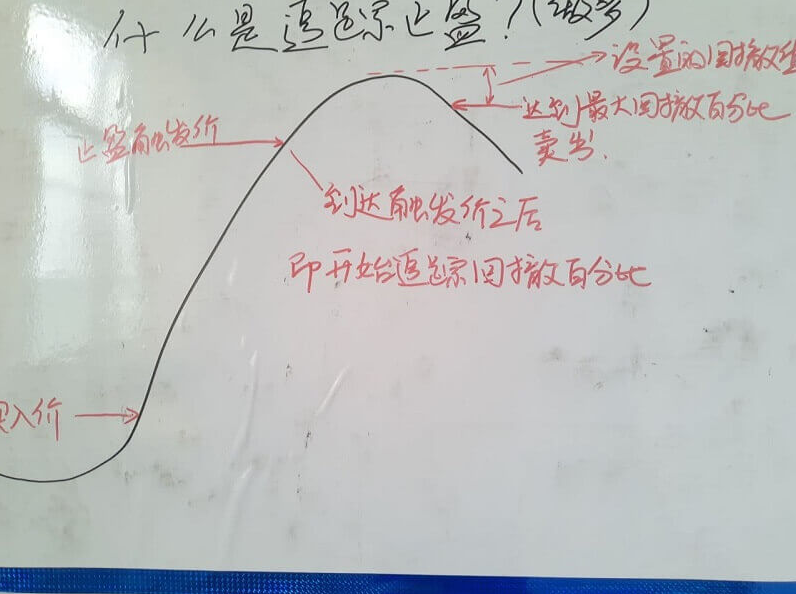 什么是追踪止盈?(做多)
设置的回撤
达到最大回撤百分比
卖出.
止盈触发价
到达触发价之后
即开始追踪回撤百分比
买入价